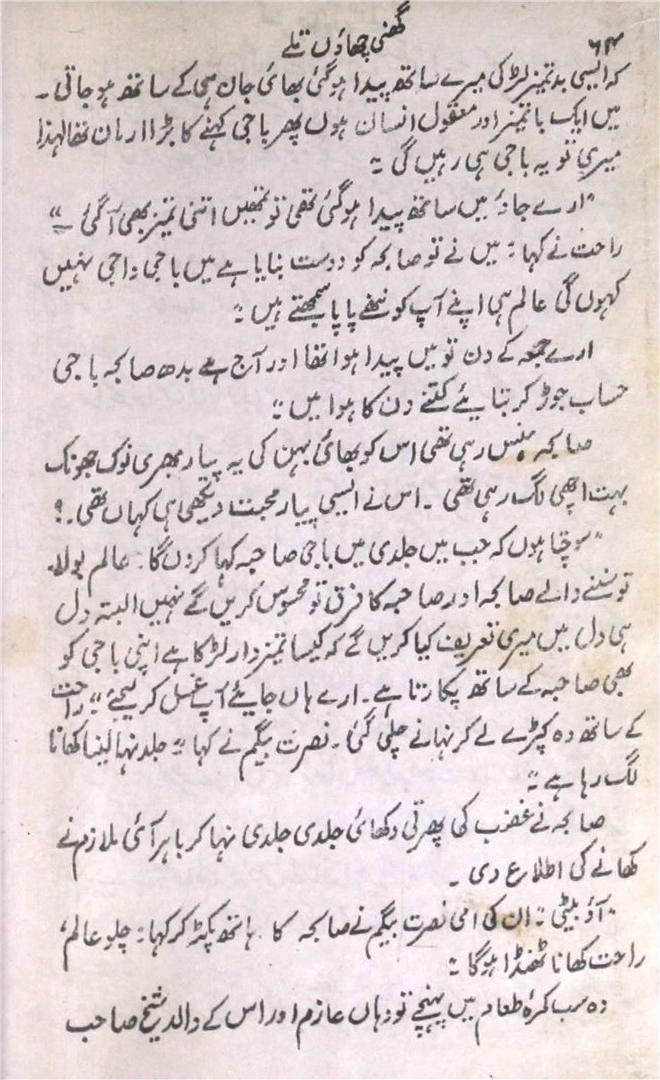 ۶۴
گھنی چھاؤں تلے
کہ ایسی بدتمیز لڑکی میرے ساتھ پیدا ہوگئی بھائی جان ہی کے ساتھ ہو جاتی ۔
میں ایک باتمیز اور معقول انسان ہوں پھر باجی کہنے کا بڑا ارمان تھا لہذا
میری تو یہ باجی ہی رہیں گی ؛؛
"ارے جاؤ میں ساتھ پیدا ہوگئی تھی تو تمھیں اتنی تمیز بھی آگئی ۔"
راحت نے کہا ؛؛ میں نے تو صابحہ کو دوست بنایا ہے میں باجی واجی نہیں
کہوں گی عالم ہی اپنے آپ کو ننھے پاپا سمجھتے ہیں ؛؛
ارے جمعہ کے دن تو میں پیدا ہوا تھا اور آج ہے بدھ صابحہ باجی
حساب جوڑ کر بتایئے کتنے دن کا ہوا میں ؛؛
صابحہ ہنس رہی تھی اس کو بھائی بہن کی یہ پیار بھری نوک جھونک
بہت اچھی لگ رہی تھی ۔ اس نے ایسی پیار محبت دیکھی ہی کہاں تھی ۔؟
"سوچتا ہوں کہ جب میں جلدی میں باجی صاحبہ کہا کروں گا ؛ عالم بولا۔
تو سننے والے صابحہ اور صاحبہ کا فرق تو محسوس کریں گے نہیں البتہ دل
ہی دل میں میری تعریف کیا کریں گے کہ کیسا تمیزدار لڑکا ہے اپنی باجی کو
بھی صاحبہ کے ساتھ پکارتا ہے ۔ ارے ہاں جایئے آپ غسل کر لیجئے " راحت
کے ساتھ وہ کپڑے لے کر نہانے چلی گئی ۔ نصرت بیگم نے کہا ؛؛ جلد نہا لینا کھانا
لگ رہا ہے ؛؛
صابحہ نے غضب کی پھرتی دکھائی جلدی جلدی نہا کر باہر آئی ملازم نے
کھانے کی اطلاع دی ۔
"آؤ بیٹی ؛؛ ان کی امی نصرت بیگم نے صابحہ کا ہاتھ پکڑ کر کہا ؛ چلو عالم،
راحت کھانا ٹھنڈا ہوگا ؛؛
وہ سب کمرۂ طعام میں پہنچے تو وہاں عازم اور اس کے والد شیخ صاحب